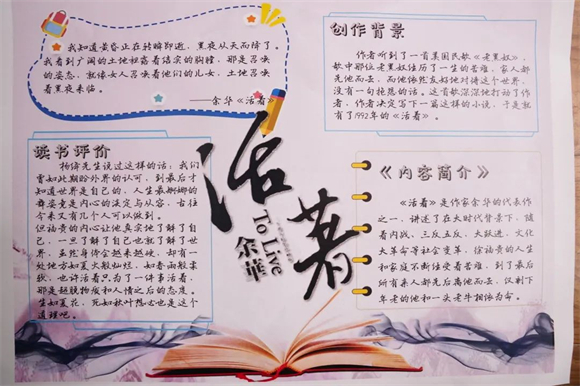 我知道黄昏正在转瞬即逝，黑夜从天而降了。
我看到广阔的土地袒露着结实的胸膛，那是召唤
的姿态，就像女人召唤着他们的儿女，土地召唤
着黑夜来临。
——余华《活着》
创作背景
作者听到了一首美国民歌《老黑奴》，
歌中那位老黑奴经历了一生的苦难，家人都
先他而去，而他依然友好地对待这个世界，
没有一句抱怨的话。这首歌深深地打动了作
者，作者决定写下一篇这样的小说，于是就
有了1992年的《活着》。
读书评价
杨绛先生说过这样的话：我们
曾如此期盼外界的认可，到最后才
知道世界是自己的，人生最婀娜的
舞姿竟是内心的淡定与从容，古往
今来又有几个人可以做到。
但福贵的内心让他真实地了解了自
己，一旦了解了自己也就了解了世
界，虽然身价会越来越硬，却有一
处地方如夏火般灿烂，如春雨般柔
软，也许活着只为了一件事活着，
那是超脱物
生如夏花，死如秋叶
道理吧。
活着
To Live
余華
《内容简介》
《活着》是作家余华的代表作
之一，讲述了在大时代背景下，随
着内战、三反五反、大跃进、文化
大革命等社会变革，徐福贵的人生
和家庭不断经受着苦难，到了最后
所有亲人都先后离他而去，仅剩下
年老的他和一头老牛相依为命。